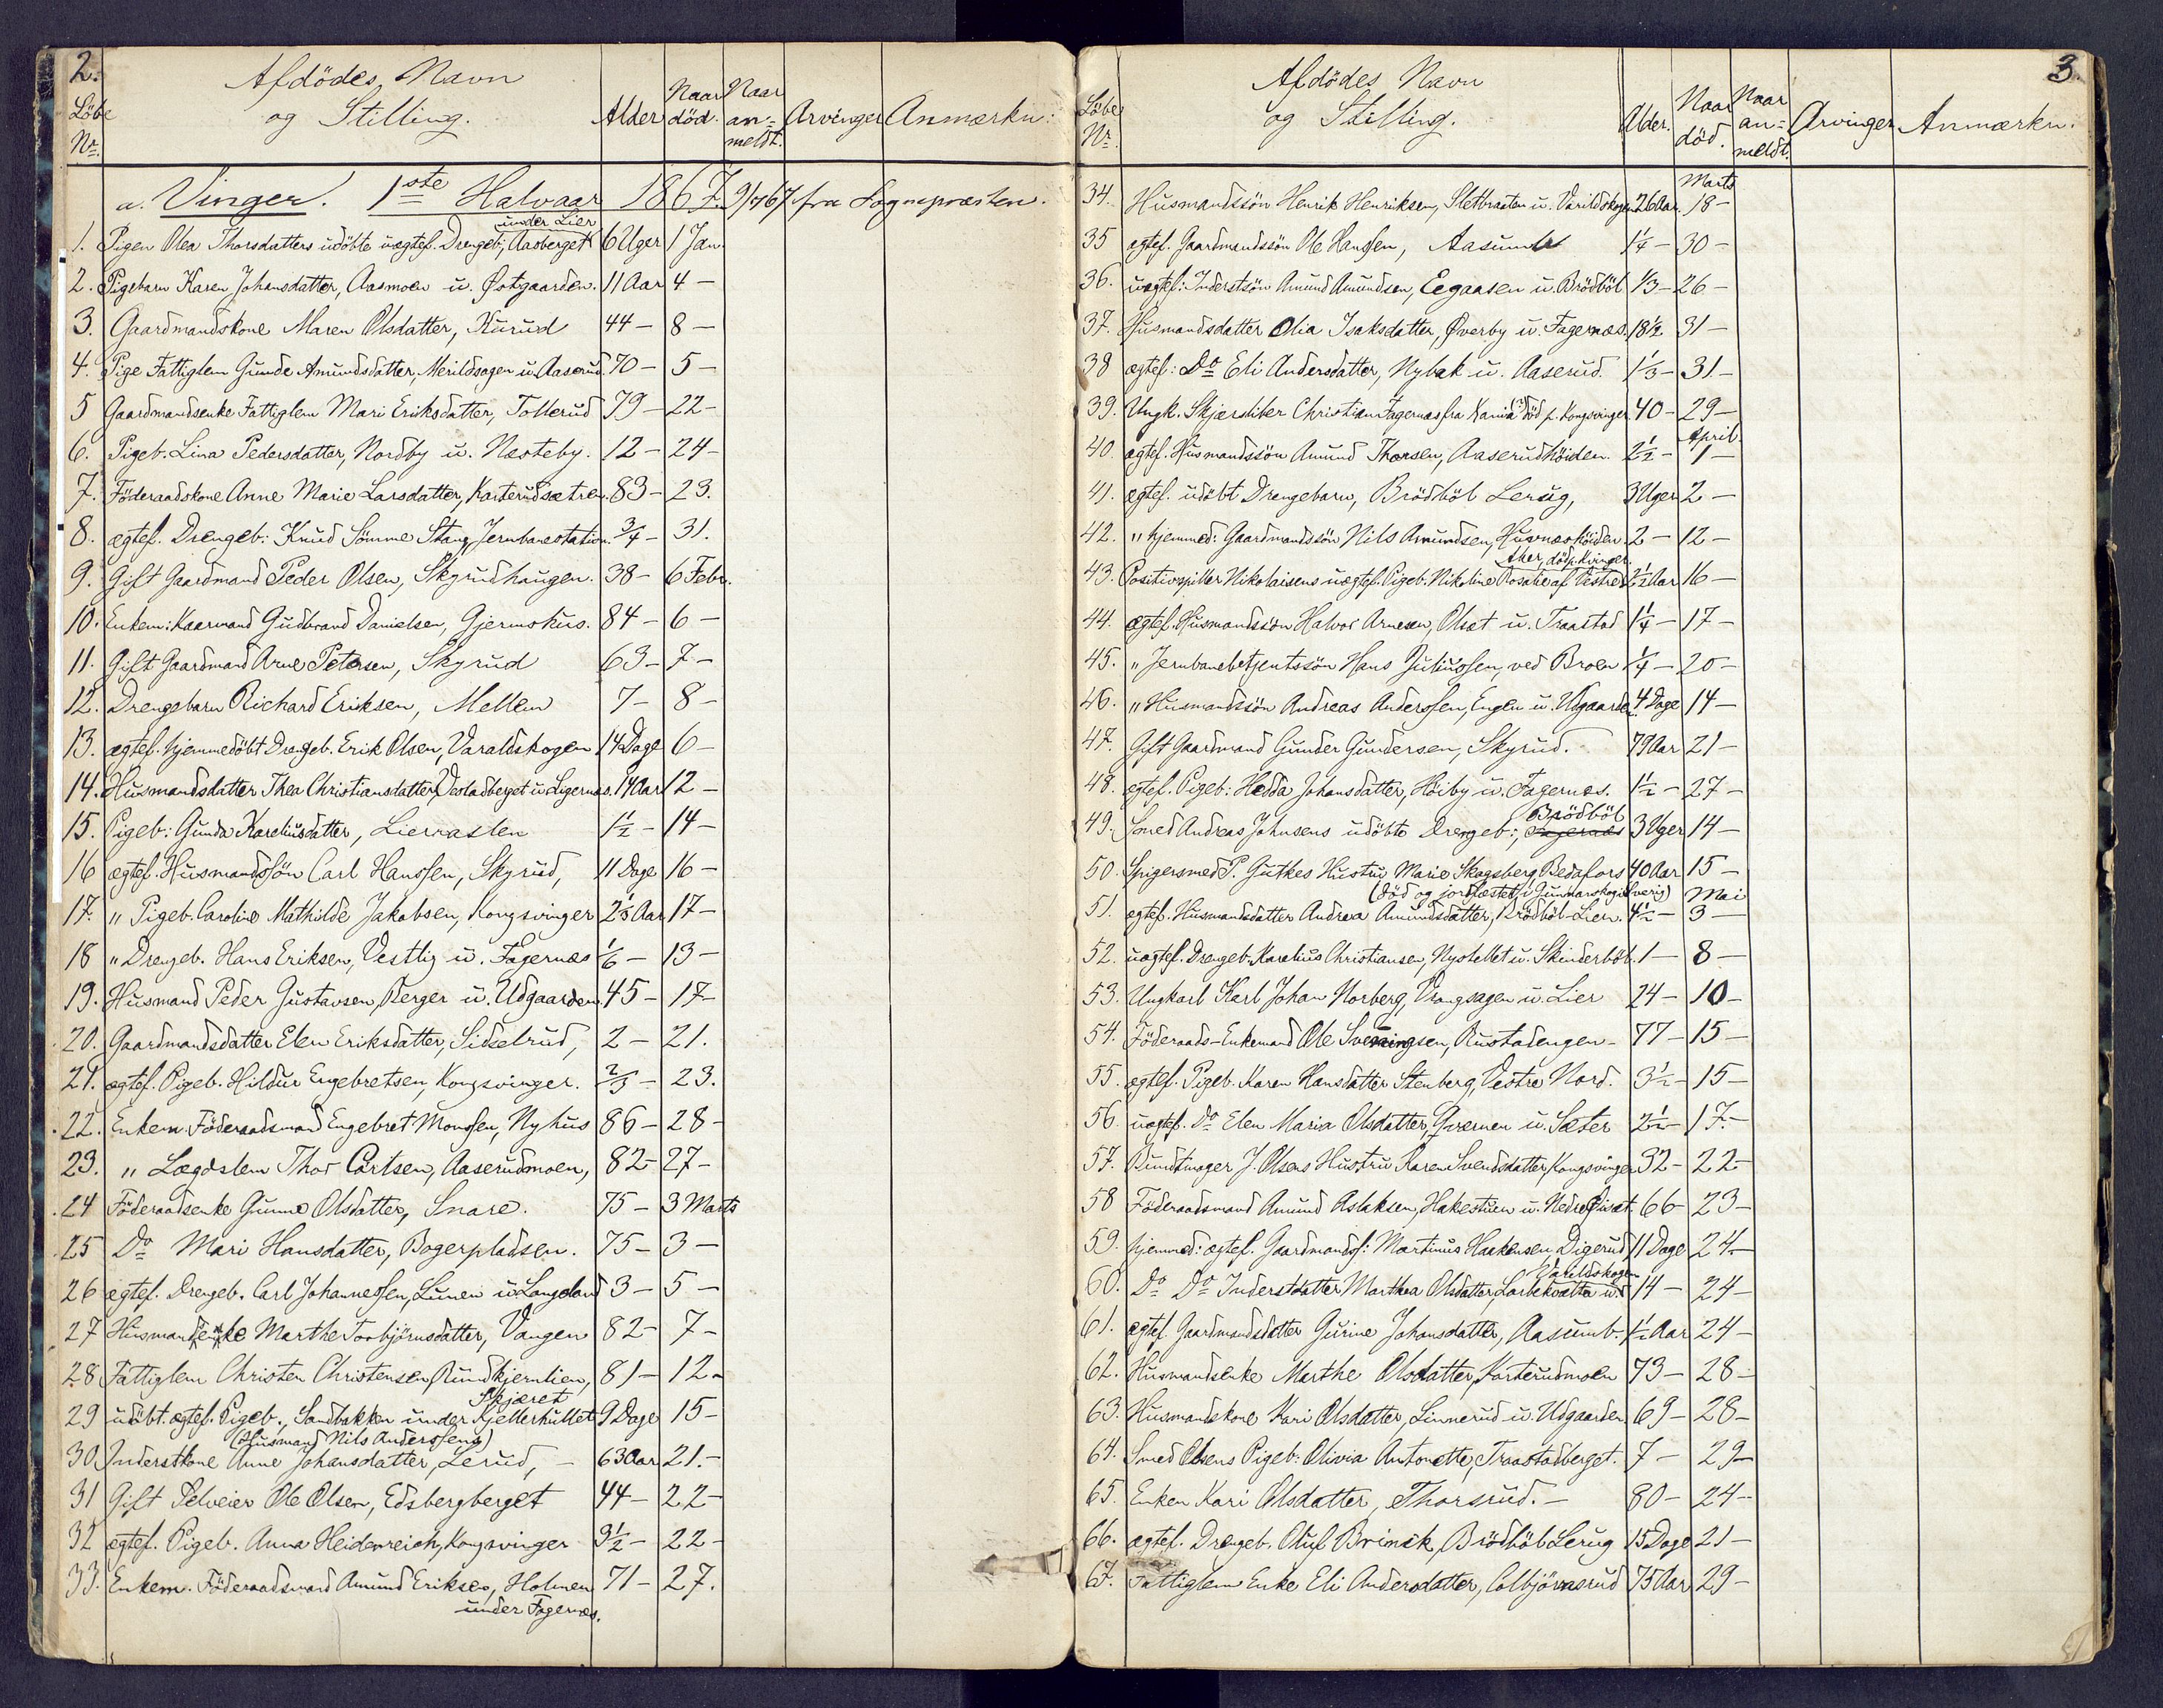 2.
Löbe
Nr.
Afdödes Navn
og Stilling.
Alder
Naar
död.
Naar
an=
meldt.
Arvinger
Anmærkn:
a. Vinger. 1ste Halvaar 1867. 9/7 67 fra Sognepræsten.
under Lier
1. Pigen Olea Thorsdatters udöbte uægtef. Drengeb; Aasberget 6 Uger 1 Jan.
2. Pigebarn Karen Johansdatter, Aasmoen u. Östgaarden. 11 Aar 4 –
3. Gaardmandskone Maren Olsdatter, Kurud 44 – 8 –
4. Pige Fattiglem Gunde Amundsdatter, Merildsagen u. Aaserud. 70 – 5 –
5 Gaardmandsenke Fattiglem Mari Eriksdatter, Tollerud 79 – 22 –
6. Pigeb. Lina Pedersdatter, Nordby u. Nesteby. 12 – 24 –
7. Föderaadskone Anne Marie Larsdatter, Karterudsætren. 83 – 23.
8. ægtef. Drengeb: Knud Sömme Stang, Jernbanestation. 3/4 – 31.
9. Gift Gaardmand Peder Olsen, Skyrudhaugen. 38 – 6 Febr.
10. Enkem: Kaarmand Gudbrand Danielsen, Gjermshus. 84 – 6 –
11. Gift Gaardmand Arne Petersen, Skyrud 63 – 7 –
12. Drengebarn Richard Eriksen, Mellem 7 – 8 –
13. ægtef. hjemmedöbt Drengeb. Erik Olsen, Varaldskogen 14 Dage 6 –
14. Husmandsdatter Thea Christiansdatter, Vestadberget u. Ligernæs. 14 Aar 12 –
15. Pigeb: Gunda Kareliusdatter, Liernasten 1 1/2 – 14 –
16 ægtef. Husmandssön Carl Hanssen, Skyrud, 11 Dage 16 –
17. " Pigeb. Caroline Mathilde Jakobsen, Kongsvinger 2 1/3 Aar 17 –
18 " Drengeb. Hans Eriksen, Vestlig u. Fagernæs 1/6 – 13 –
19. Husmand Peder Gustavsen, Berger u. Udgaarden. 45 – 17 –
20. Gaardmandsdatter Elen Eriksdatter, Sidselrud, 2 – 21.
21. ægtef. Pigeb. Hildur Engebretsen, Kongsvinger. 2/3 – 23.
22. Enkem. Föderaadsmand Engebret Monssen, Nyhus 86 – 28 –
23. " Lægdslem Thor Carlsen, Aaserudmoen, 82 – 27 –
24 Föderaadsenke Gunne Olsdatter, Snare. 75 – 3 Marts
25 Do Mari Hansdatter, Bogerpladsen. 75 – 3 –
26 ægtef. Drengeb. Carl Johannessen, Lunen u. Langeland 3 – 5 –
27 Husmandsenke Marthe Torbjörnsdatter, Vangen 82 – 7 –
28 Fattiglem Christen Christensen, Rundkjernlien, 81 – 12 –
Skjæret
29 udöbt. ægtef. Pigeb., Sandbakken under Kjellerhullet 9 Dage 15 –
(Husmand Nils Anderssens)
30 Inderstkone Anne Johansdatter, Lerud, – 63 Aar 21. –
31 Gift Selveier Ole Olsen, Edsbergberget 44 – 22 –
32 ægtef. Pigeb. Anna Heidenreich, Kongsvinger 3 1/2 – 22 –
33. Enkem. Föderaadsmand Amund Eriksen, Holmen 71 – 27.
under Fagernæs.
3.
Löbe
Nr.
Afdödes Navn
og Stilling.
Alder.
Naar
död.
Naar
an=
meldt.
Arvinger
Anmærkn.
Marts
34. Husmandssön Henrik Henriksen, Slettbraaten u. Varildskogen 26 Aar. 18 –
35 ægtef. Gaardmandssön Ole Hanssen, Aasumb 1 1/4 – 30 –
36. uægtef: Inderstsön Amund Amundsen, Eegaasen u. Brödböl 1/3 – 26 –
37. Husmandsdatter Olia Isaksdatter, Överby u. Fagernæs. 18 1/2 31 –
38 ægtef: Do Eli Andersdatter, Nybak u. Aaserud. 1 1/3 – 31 –
39. Ungk. Skjærsliber Christian Fagernæs fra död p. Kongsvinger 40 – 29 –
April.
40. ægtef. Husmandssön Amund Thorsen, Aaserudhöiden. 2 1/2 – 1 –
41. ægtef. udöbt Drengebarn, Brödböl Lerug, 3 Uger 2 –
42. " hjemmed: Gaardmandssön Nils Amundsen, Huvnæshöiden. 2 – 12 –
Aker, död p. Kvinger.
43. Positivspiller Nikolaisens uægtef. Pigeb. Nikoline Rosalie af Vestre 2 1/2 Aar 16 –
44. ægtef. Husmandssön Halvor Arnesen, Olset u. Traastad 1 1/4 – 17 –
45. " Jernbanebetjentssön Hans Juliussen, ved Broen 1/4 – 20 –
46. " Husmandssön Andreas Anderssen, Engen u. Udgaarden 4 Dage 14 –
47. Gift Gaardmand Gunder Gundersen, Skyrud. 79 Aar 21 –
48. ægtef. Pigeb: Hedda Johansdatter, Höiby u. Fagernæs. 1 1/2 – 27 –
Brödböl
49. Smed Andreas Johnsens udöbte Drengeb:, Fagernæs 3 Uger 14 –
50. Spigersmed P. Gutkes Hustru Marie Skogsberg, Bedafors 40 Aar 15 –
(död og jordfæstet i Gunnarskog i Sverig) Mai
51. ægtef. Husmandsdatter Andrea Amundsdatter, Brödböl-Lien. 4 1/2 – 3 –
52. uægtef. Drengeb. Karelius Christiansen, Nystellet u. Skinderböl. 1 – 8 –
53. Ungkarl Karl Johan Norberg, Vrangsagen u. Lier 24 – 10 –
54. Föderaads-Enkemand Ole Sveningsen, Rustadengen – 77 – 15 –
55. ægtef. Pigeb. Karen Hansdatter Stenberg, Vestre Nord. 3 1/2 – 15 –
56 uægtef. Do Elen Maria Olsdatter, Qværnen u. Sæter 2 1/2 – 17. –
57. Bundtmager J. Olsens Hustru Karen Svendsdatter, Kongsvinger 32 – 22 –
58 Föderaadsmand Amund Aslaksen, Hakestuen u. Nedre 66 – 23 –
59. hjemmed: ægtef. Gaardmands: Martinus Haakensen, Digerud 11 Dage 24 –
Varildskogen
60. Do Do Inderstdatter Marthea Olsdatter, u. 14 – 24 –
61. ægtef. Gaardmandsdatter Gurine Johansdatter, Aasumb. 1 1/2 Aar 24 –
62. Husmandsenke Marthe Olsdatter, Karterudmoen 73 – 28 –
63. Husmandskone Kari Olsdatter, Linnerud u. Udgaarden 69 – 28 –
64. Smed Olsens Pigeb: Olivia Antonette, Traastadberget. 7 – 29 –
65. Enken Kari Olsdatter, Thorsrud. – 80 – 24 –
66. ægtef. Drengeb. Oluf Brinck, Brödböl Lerug 15 Dage 21 –
67. Fattiglem Enke Eli Andersdatter, Colbjörnsrud 75 Aar 29 –